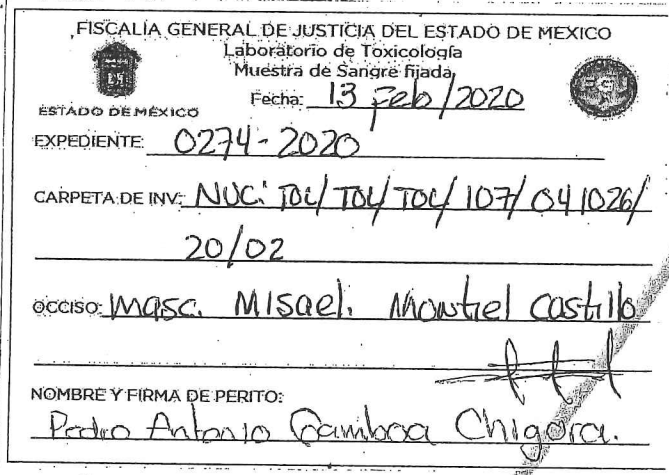 FISCALÍA GENERAL DE JUSTICIA DEL ESTADO DE MÉXICO
Laboratorio de Toxicología
Muestra de Sangre fijada
Fecha: 13 Feb/2020
ESTADO DE MÉXICO
EXPEDIENTE: 0274-2020
CARPETA DE INV: NUC: TOL/TOL/TOL/107/041026/
20/02
OCCISO: Masc. Misael. Montiel Castillo
NOMBRE Y FIRMA DE PERITO:
Pedro Antonio Gamboa Chigora.